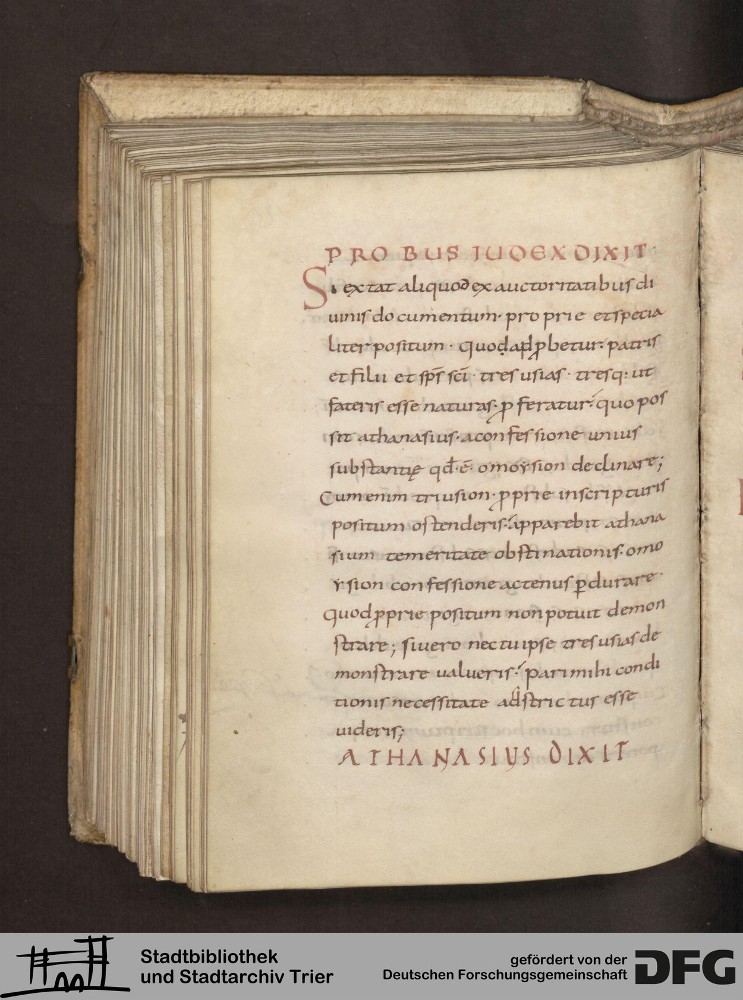 PROBUS IUDEX DIXIT·
Si extat aliquod ex auctoritatibus di
uinis documentum· proprie et specia
liter positum· quod adꝓbetur· patris
et filii et sp̄s sc̄i· tres usias· tresq· ut
fateris esse naturas· ꝓferatur· quo pos
sit athanasius· a confessione unius
substantię qd̄·ē· omoysion declinare;
Cum enim triusion· ꝓprie in scripturis
positum ostenderis· apparebit athana
sium temeritate obstinationis· omo
ysion confessione actenus ꝑdurare·
quod ꝓprie positum non potuit demon
strare; si uero nec tu ipse tres usias de
monstrare ualueris· pari mihi condi
tionis necessitate adstrictus esse
uideris;
ATHANASIUS DIXIT
Stadtbibliothek
und Stadtarchiv Trier
gefördert von der
Deutschen Forschungsgemeinschaft
DFG